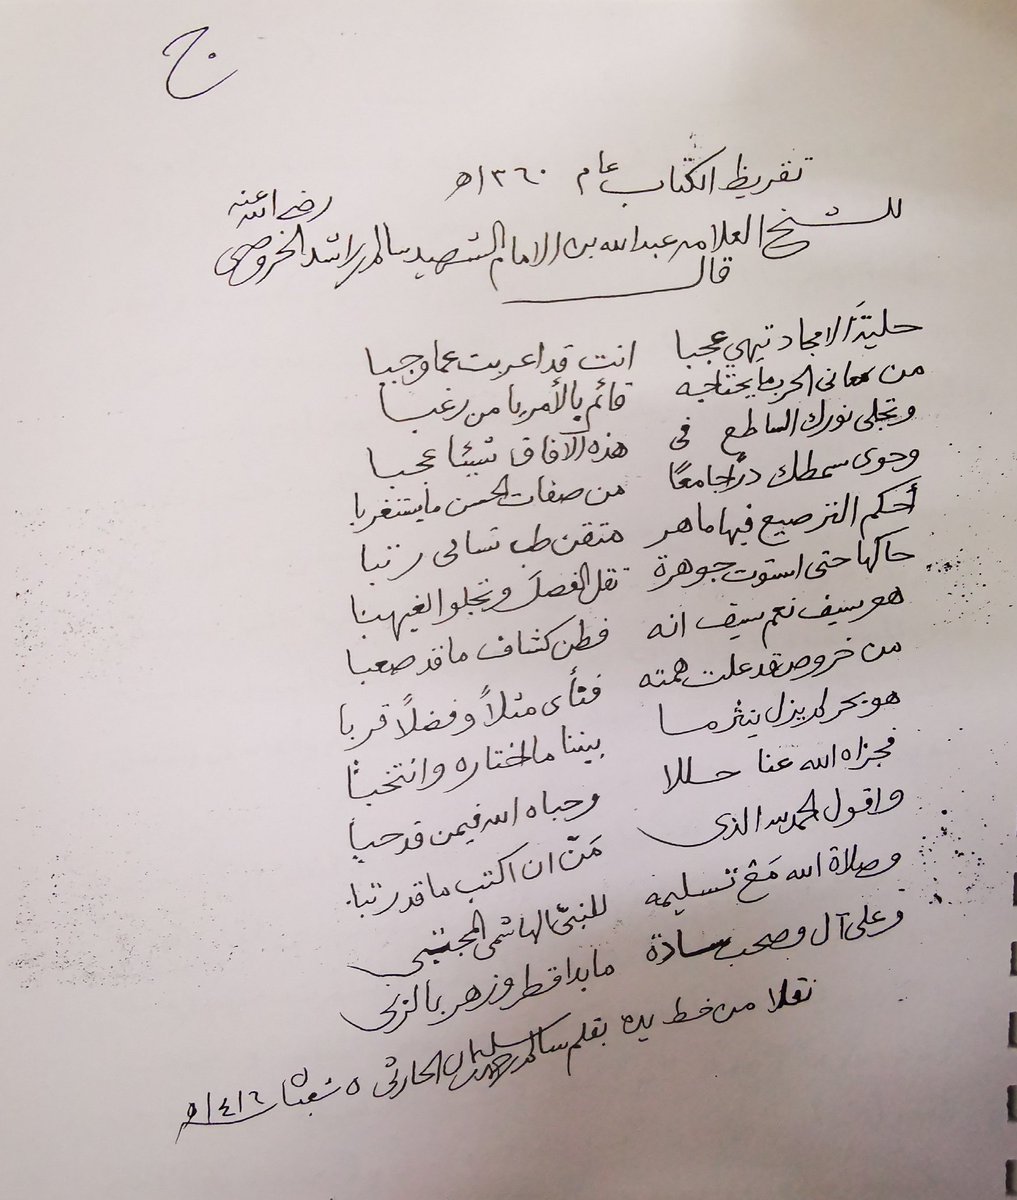 ج
تقريظ الكتاب عام ١٣٦٠هـ
للشيخ العلامه عبدالله بن الامام الشهيد سالم بن راشد الخروصي رضي الله عنه
قال
حليةَ الامجاد تيهي عجبا انت قد اعربت عما وجبا
من معانى الحرب ما يحتاجه قائم بالأمر يا من رغبا
وتجلى نورك الساطع فى هذه الآفاق شيئا عجبا
وحوى سمطك درًا جامعًا من صفات الحسن ما يستغربا
أحكم الترصيع فيها ماهر متقن طب تسالى رتبا
حاكها حتى استوت جوهرة تقل الفصل وتجلوا الغيهبا
هو سيف نعم سيف انه فطن كشاف ما قد صعبا
من خروص قد علت همته فنأى مثلاً وفضلاً قربا
هو بحر لم يزل ينثر ما بيننا ما اختاره وانتخبا
فجزاه الله عنا حللا وحباه الله فيمن قد حبا
واقول الحمد لله الذى مَنّ ان اكتب ما قد رتبا
وصلاة الله مَعْ تسليمه للنبيّ الهاشمى المجتبى
وعلى آل وصحب سادة ما بدا قطر وزهر بالربى
نقلا من خط يده بقلم سالم بن سليمان الحارثى ٥ شعبان ١٤١٦هـ